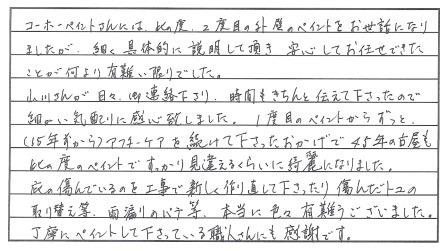 コーホーペイントさんには、此の度、2度目の外壁のペイントをお世話になり
ましたが、細く具体的に説明して頂き 安心してお任せできた
ことが何より有難い限りでした。
小川さんが日々、御連絡下さり、時間もきちんと伝えて下さったので
細かい気配りに感心致しました。1度目のペイントからずっと、
(15年前から)アフターケアを続けて下さったおかげで45年の古屋も
此の度のペイントですっかり見違えるくらいに綺麗になりました。
庇の傷んでいるのを工事で新しく作り直して下さったり 傷んだトユの
取り替え等、雨漏りのパテ等、本当に色々有難うございました。
丁寧にペイントして下さっている職人さんにも感謝です。